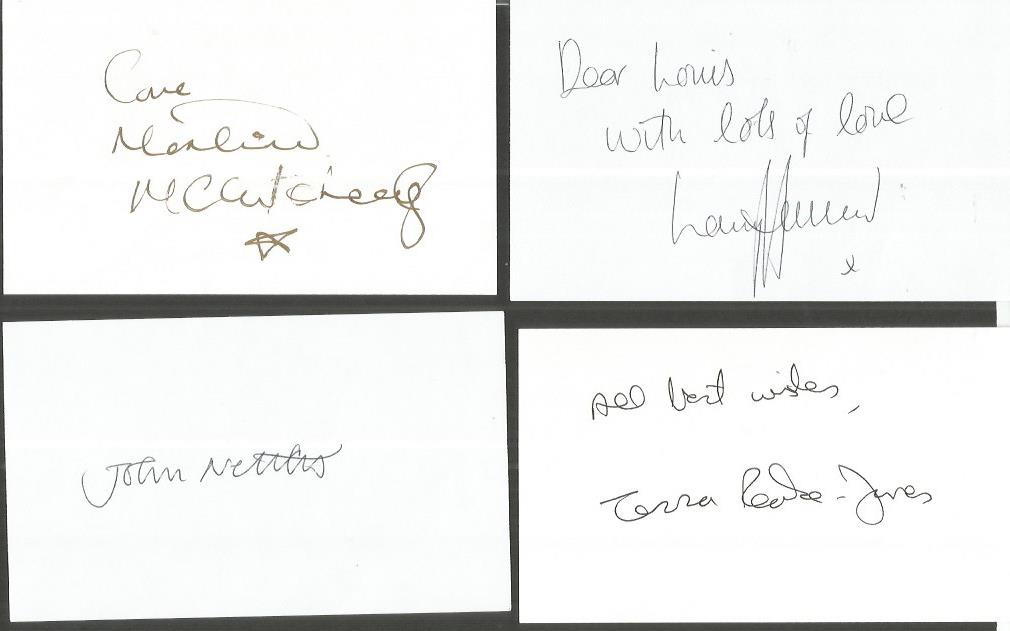 Love
Martine
McCutcheon
Dear Louis
with lots of love
x
John Nettles
All best wishes,
Tessa Peake-Jones